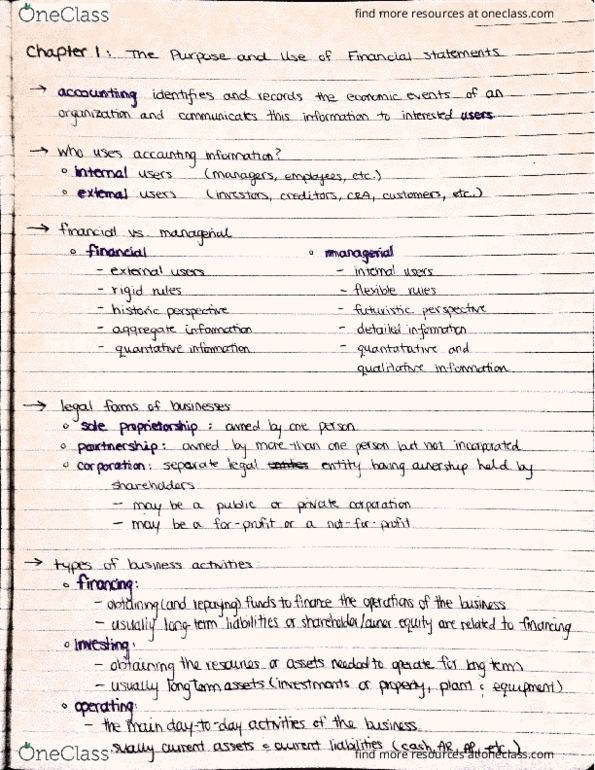 OneClass find more resources at oneclass.com
Chapter 1: The Purpose and Use of Financial Statements
→ accounting identifies and records the economic events of an
organization and communicates this information to interested users
→ who uses accounting information?
◦ internal users (managers, employees, etc.)
◦ external users (investors, creditors, CRA, customers, etc.)
→ financial vs. managerial
◦ financial ◦ managerial
- external users - internal users
- rigid rules - flexible rules
- historic perspective - futuristic perspective
- aggregate information - detailed information
- quantative information - quantatative and
qualitative information
→ legal forms of businesses
◦ sole proprietorship: owned by one person
◦ partnership: owned by more than one person but not incorporated
◦ corporation: separate legal entity having ownership held by
shareholders
- may be a public or private corporation
- may be a for-profit or a not-for-profit
→ types of business activities:
◦ financing:
- obtaining (and repaying) funds to finance the operations of the business
- usually long-term liabilities or shareholder/owner equity are related to financing
◦ investing:
- obtaining the resources or assets needed to operate for long term
- usually long term assets (investments or property, plant & equipment)
◦ operating:
- the main day-to-day activities of the business
sually current assets & current liabilities (cash, AR, AP, etc.)
OneClass find more resources at oneclass.com